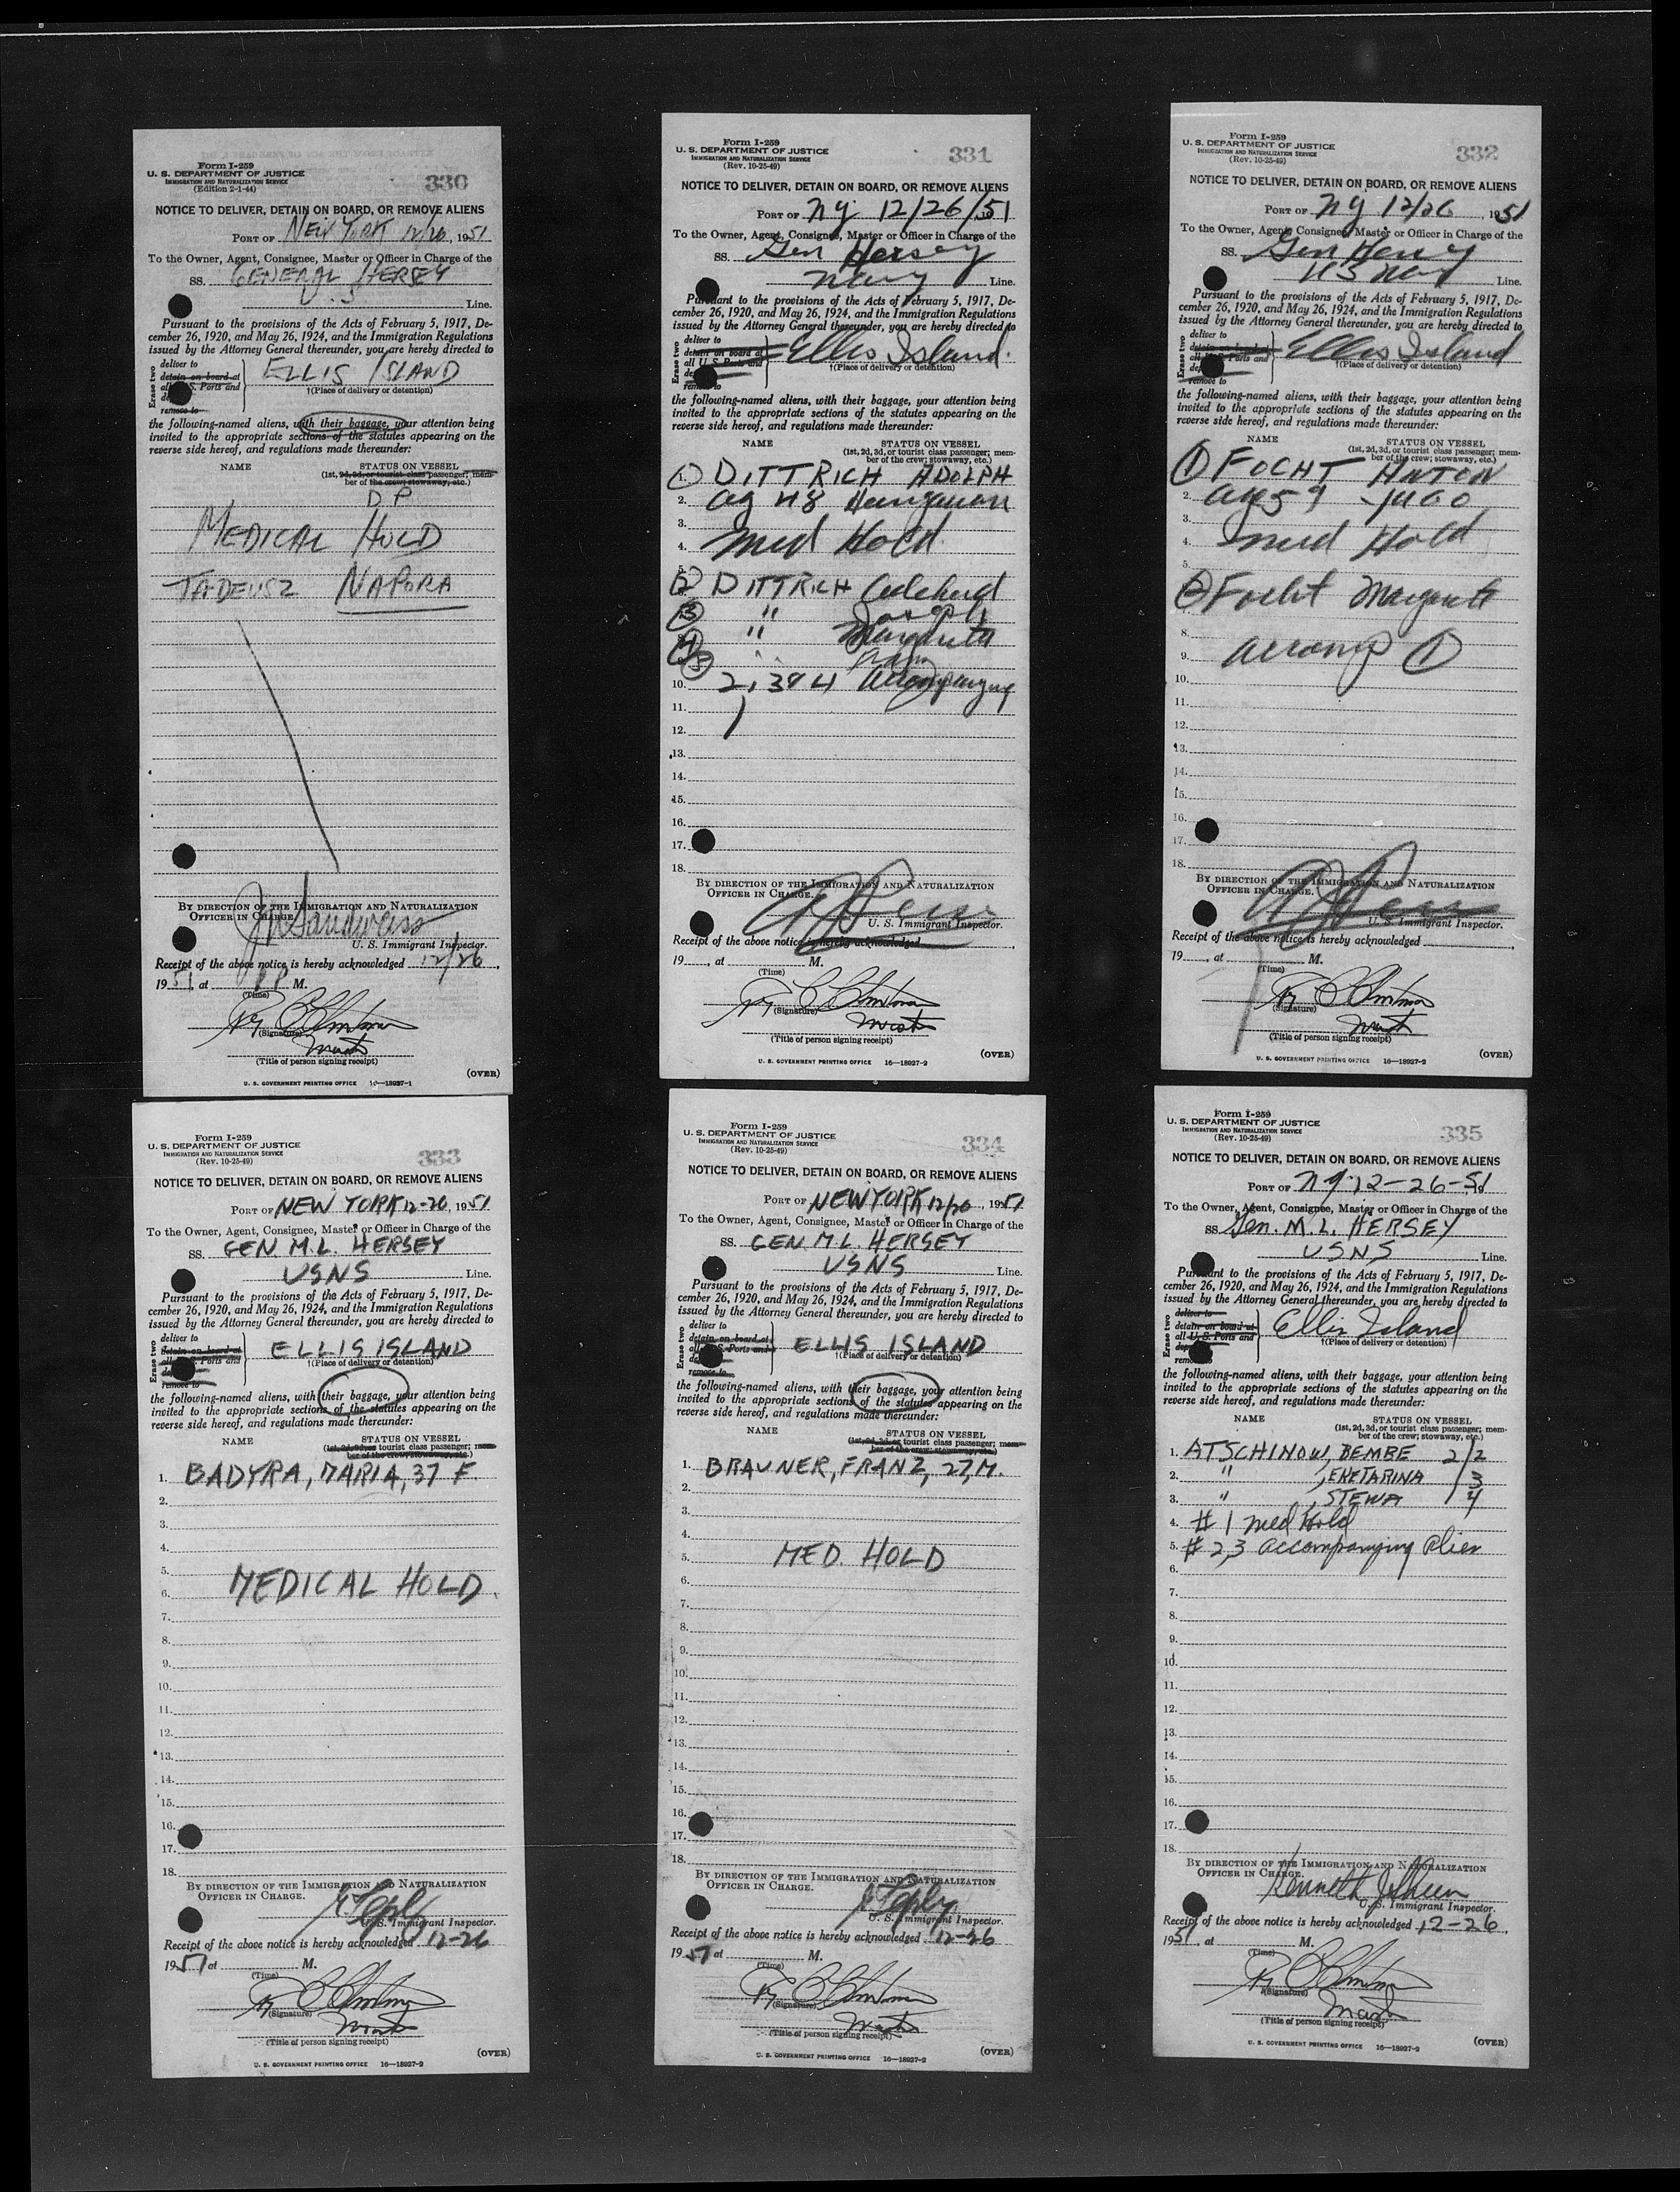 Form I-259
U. S. DEPARTMENT OF JUSTICE
IMMIGRATION AND NATURALIZATION SERVICE
(Edition 2-1-44)
330
NOTICE TO DELIVER, DETAIN ON BOARD, OR REMOVE ALIENS
PORT OF NEW YORK 12/26, 1951
To the Owner, Agent, Consignee, Master or Officer in Charge of the
SS. GENERAL HERSEY
U.S. Line.
Pursuant to the provisions of the Acts of February 5, 1917, De-
cember 26, 1920, and May 26, 1924, and the Immigration Regulations
issued by the Attorney General thereunder, you are hereby directed to
Erase two
deliver to
detain on board at
all U. S. Ports and
remove to
ELLIS ISLAND
†(Place of delivery or detention)
the following-named aliens, with their baggage, your attention being
invited to the appropriate sections of the statutes appearing on the
reverse side hereof, and regulations made thereunder:
NAME STATUS ON VESSEL
(1st, 2d, 3d, or tourist class passenger; mem-
ber of the crew; stowaway, etc.)
D P
MEDICAL HOLD
TADEUSZ NAPORA
BY DIRECTION OF THE IMMIGRATION AND NATURALIZATION
OFFICER IN CHARGE
U. S. Immigrant Inspector.
Receipt of the above notice is hereby acknowledged 12/26,
1951, at P M.
(Time)
(Signature)
(Title of person signing receipt)
(OVER)
U. S. GOVERNMENT PRINTING OFFICE 16—18927-1
Form I-259
U. S. DEPARTMENT OF JUSTICE
IMMIGRATION AND NATURALIZATION SERVICE
(Rev. 10-25-49)
331
NOTICE TO DELIVER, DETAIN ON BOARD, OR REMOVE ALIENS
PORT OF NY 12/26/51
To the Owner, Agent, Consignee, Master or Officer in Charge of the
SS. Gen Hersey
Navy Line.
Pursuant to the provisions of the Acts of February 5, 1917, De-
cember 26, 1920, and May 26, 1924, and the Immigration Regulations
issued by the Attorney General thereunder, you are hereby directed to
Erase two
deliver to
detain on board at
all U. S. Ports and
Ellis Island.
†(Place of delivery or detention)
the following-named aliens, with their baggage, your attention being
invited to the appropriate sections of the statutes appearing on the
reverse side hereof, and regulations made thereunder:
NAME STATUS ON VESSEL
(1st, 2d, 3d, or tourist class passenger; mem-
ber of the crew; stowaway, etc.)
1. DITTRICH ADOLPH
2. ag 48 Hungarian
3.
4. Med Hold
5.
2 DITTRICH
3 " Joseph
4 " Margareta
5 "
10. 2, 3 & 4 Accompanying
11.
12.
13.
14.
15.
16.
17.
18.
BY DIRECTION OF THE IMMIGRATION AND NATURALIZATION
OFFICER IN CHARGE.
U. S. Immigrant Inspector.
Receipt of the above notice is hereby acknowledged
19 , at M.
(Time)
(Signature)
(Title of person signing receipt)
(OVER)
U. S. GOVERNMENT PRINTING OFFICE 16—18927-2
Form I-259
U. S. DEPARTMENT OF JUSTICE
IMMIGRATION AND NATURALIZATION SERVICE
(Rev. 10-25-49)
332
NOTICE TO DELIVER, DETAIN ON BOARD, OR REMOVE ALIENS
PORT OF NY 12/26, 1951
To the Owner, Agent, Consignee, Master or Officer in Charge of the
SS. Gen Hersey
US Navy Line.
Pursuant to the provisions of the Acts of February 5, 1917, De-
cember 26, 1920, and May 26, 1924, and the Immigration Regulations
issued by the Attorney General thereunder, you are hereby directed to
Erase two
deliver to
detain on board at
all U. S. Ports and
remove to
Ellis Island
†(Place of delivery or detention)
the following-named aliens, with their baggage, your attention being
invited to the appropriate sections of the statutes appearing on the
reverse side hereof, and regulations made thereunder:
NAME STATUS ON VESSEL
(1st, 2d, 3d, or tourist class passenger; mem-
ber of the crew; stowaway, etc.)
1 FOCHT ANTON
2. age 59 YUGO
3.
4. Med Hold
5.
2 Focht Margarete
8.
9. Accomp 1
10.
11.
12.
13.
14.
15.
16.
17.
18.
BY DIRECTION OF THE IMMIGRATION AND NATURALIZATION
OFFICER IN CHARGE.
U. S. Immigrant Inspector.
Receipt of the above notice is hereby acknowledged
19 , at M.
(Time)
(Signature)
(Title of person signing receipt)
(OVER)
U. S. GOVERNMENT PRINTING OFFICE 16—18927-2
Form I-259
U. S. DEPARTMENT OF JUSTICE
IMMIGRATION AND NATURALIZATION SERVICE
(Rev. 10-25-49)
333
NOTICE TO DELIVER, DETAIN ON BOARD, OR REMOVE ALIENS
PORT OF NEW YORK 12-26, 1951
To the Owner, Agent, Consignee, Master or Officer in Charge of the
SS. GEN. M.L. HERSEY
USNS Line.
Pursuant to the provisions of the Acts of February 5, 1917, De-
cember 26, 1920, and May 26, 1924, and the Immigration Regulations
issued by the Attorney General thereunder, you are hereby directed to
Erase two
deliver to
detain on board at
all U. S. Ports and
remove to
ELLIS ISLAND
†(Place of delivery or detention)
the following-named aliens, with their baggage, your attention being
invited to the appropriate sections of the statutes appearing on the
reverse side hereof, and regulations made thereunder:
NAME STATUS ON VESSEL
(1st, 2d, 3d, or tourist class passenger; mem-
ber of the crew, stowaway, etc.)
1. BADYRA, MARIA, 37 F.
2.
3.
4.
5.
6. MEDICAL HOLD.
7.
8.
9.
10.
11.
12.
13.
14.
15.
16.
17.
18.
BY DIRECTION OF THE IMMIGRATION AND NATURALIZATION
OFFICER IN CHARGE.
U. S. Immigrant Inspector.
Receipt of the above notice is hereby acknowledged 12-26
1951 at M.
(Time)
(Signature)
(Title of person signing receipt)
(OVER)
U. S. GOVERNMENT PRINTING OFFICE 16—18927-2
Form I-259
U. S. DEPARTMENT OF JUSTICE
IMMIGRATION AND NATURALIZATION SERVICE
(Rev. 10-25-49)
334
NOTICE TO DELIVER, DETAIN ON BOARD, OR REMOVE ALIENS
PORT OF NEW YORK 12/26, 1951
To the Owner, Agent, Consignee, Master or Officer in Charge of the
SS. GEN. M.L. HERSEY
USNS Line.
Pursuant to the provisions of the Acts of February 5, 1917, De-
cember 26, 1920, and May 26, 1924, and the Immigration Regulations
issued by the Attorney General thereunder, you are hereby directed to
Erase two
deliver to
detain on board at
all U. S. Ports and
remove to
ELLIS ISLAND
†(Place of delivery or detention)
the following-named aliens, with their baggage, your attention being
invited to the appropriate sections of the statutes appearing on the
reverse side hereof, and regulations made thereunder:
NAME STATUS ON VESSEL
(1st, 2d, 3d, or tourist class passenger; mem-
ber of the crew; stowaway, etc.)
1. BRAUNER, FRANZ, 27, M.
2.
3.
4.
5. MED. HOLD
6.
7.
8.
9.
10.
11.
12.
13.
14.
15.
16.
17.
18.
BY DIRECTION OF THE IMMIGRATION AND NATURALIZATION
OFFICER IN CHARGE.
U. S. Immigrant Inspector.
Receipt of the above notice is hereby acknowledged 12-26
1951 at M.
(Time)
(Signature)
(Title of person signing receipt)
(OVER)
U. S. GOVERNMENT PRINTING OFFICE 16—18927-2
Form I-259
U. S. DEPARTMENT OF JUSTICE
IMMIGRATION AND NATURALIZATION SERVICE
(Rev. 10-25-49)
335
NOTICE TO DELIVER, DETAIN ON BOARD, OR REMOVE ALIENS
PORT OF NY 12-26-51
To the Owner, Agent, Consignee, Master or Officer in Charge of the
SS Gen. M. L. HERSEY
USNS Line.
Pursuant to the provisions of the Acts of February 5, 1917, De-
cember 26, 1920, and May 26, 1924, and the Immigration Regulations
issued by the Attorney General thereunder, you are hereby directed to
Erase two
deliver to
detain on board at
all U. S. Ports and
Ellis Island
†(Place of delivery or detention)
the following-named aliens, with their baggage, your attention being
invited to the appropriate sections of the statutes appearing on the
reverse side hereof, and regulations made thereunder:
NAME STATUS ON VESSEL
(1st, 2d, 3d, or tourist class passenger; mem-
ber of the crew; stowaway, etc.)
1. ATSCHINOW, BEMBE 2/2
2. " , EKETARINA /3
3. " , STEWA /4
4. #1 Med Hold
5. #2,3 accompanying Alien
6.
7.
8.
9.
10.
11.
12.
13.
14.
15.
16.
17.
18.
BY DIRECTION OF THE IMMIGRATION AND NATURALIZATION
OFFICER IN CHARGE.
Kenneth
U. S. Immigrant Inspector.
Receipt of the above notice is hereby acknowledged 12-26,
1951, at M.
(Time)
(Signature)
(Title of person signing receipt)
(OVER)
U. S. GOVERNMENT PRINTING OFFICE 16—18927-2